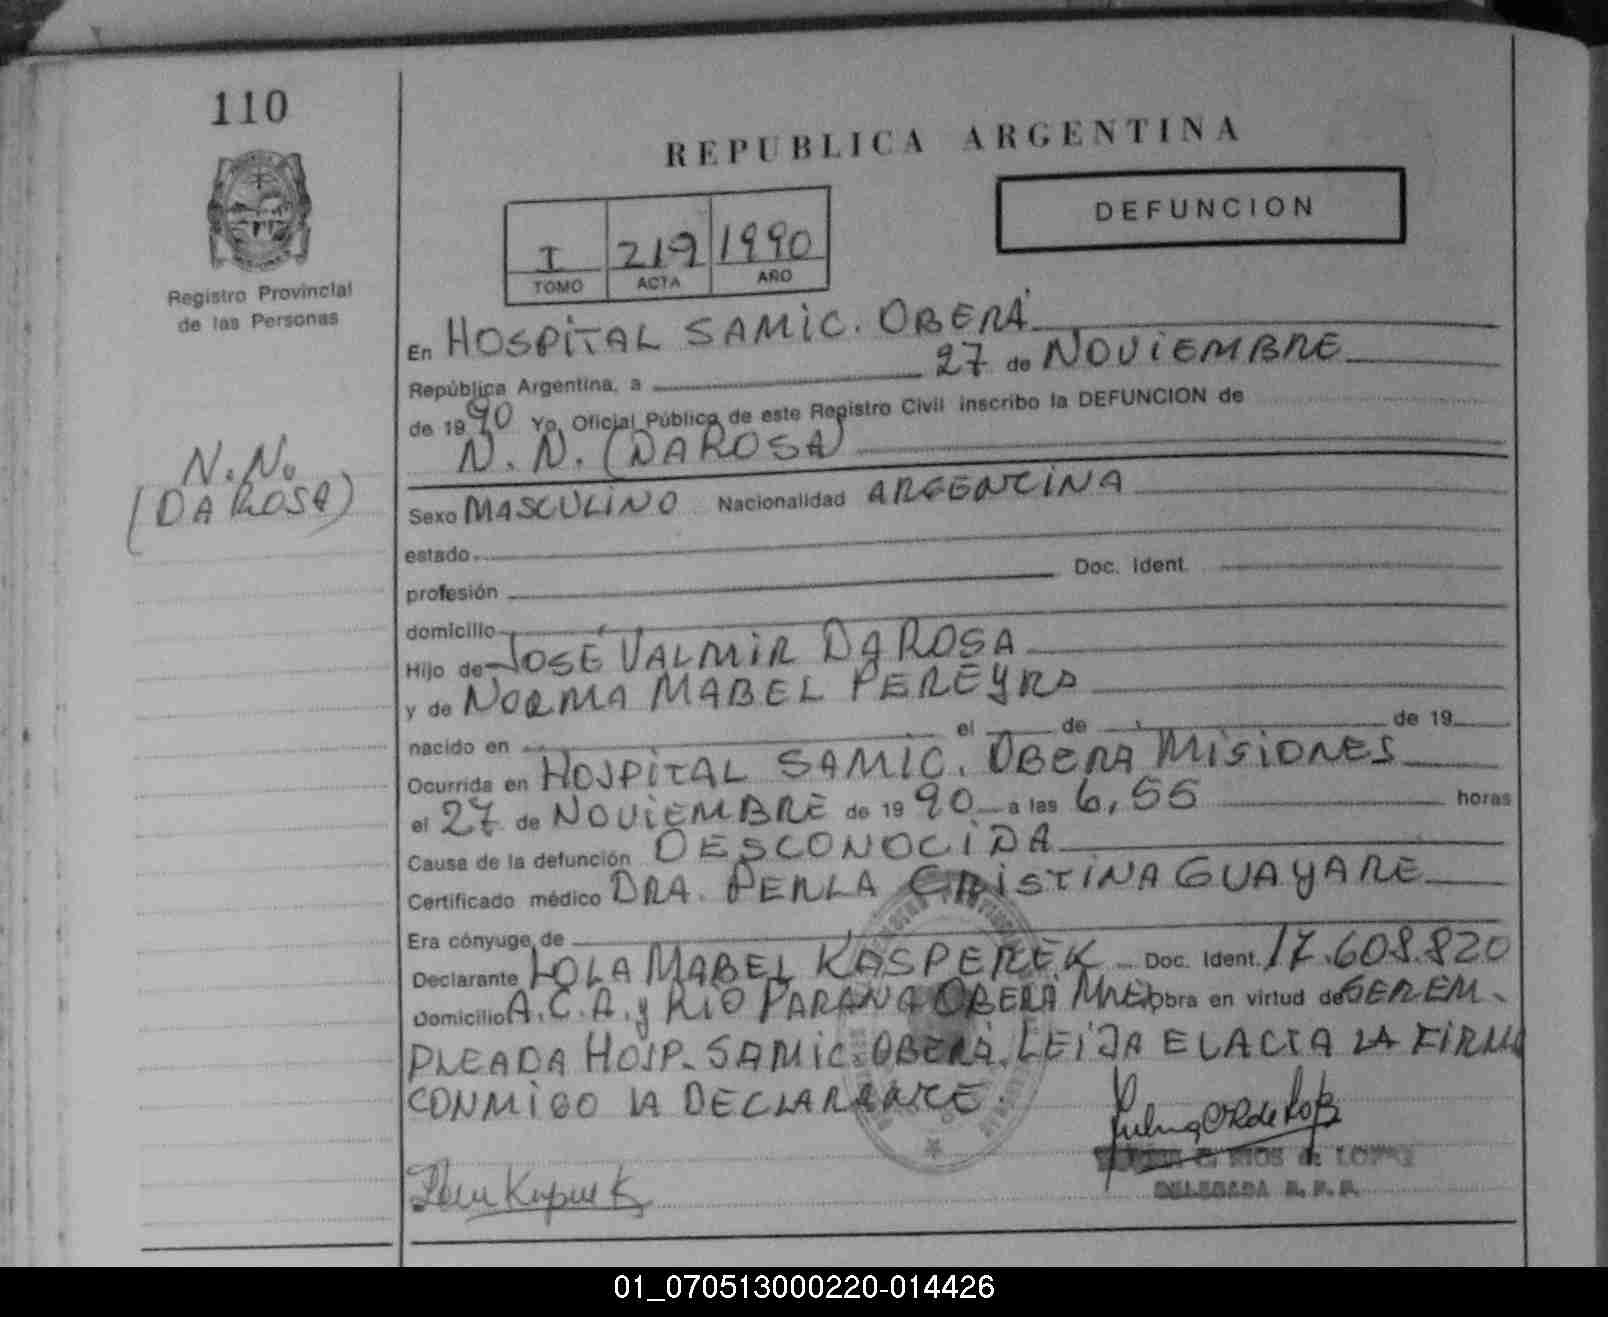 110
REPUBLICA ARGENTINA
DEFUNCION
I 219 1990
TOMO ACTA AÑO
Registro Provincial
de las Personas
N.N.
(DA ROSA)
En HOSPITAL SAMIC. OBERÁ
República Argentina, a 27 de NOVIEMBRE
de 1990 Yo, Oficial Público de este Registro Civil inscribo la DEFUNCION de
N. N. (DA ROSA)
Sexo MASCULINO Nacionalidad ARGENTINA
estado
profesión Doc. Ident.
domicilio
Hijo de JOSÉ VALMIR DA ROSA
y de NORMA MABEL PEREYRA
nacido en el de de 19
Ocurrida en HOSPITAL SAMIC. OBERA MISIONES
el 27 de NOVIEMBRE de 1990 a las 6,55 horas
Cause de la defunción DESCONOCIDA
Certificado médico DRA. PERLA CRISTINA GUAYARE
Era cónyuge de
Declarante LOLA MABEL KASPEREK Doc. Ident. 17.608.820
Domicilio A.C.A. y RIO PARANA OBERÁ Mnes obra en virtud de SER EM-
PLEADA HOSP. SAMIC. OBERÁ. LEIDA EL ACTA LA FIRMA
CONMIGO LA DECLARANTE.
RIOS de LOPEZ
DELEGADA R. P. P.
01_070513000220-014426